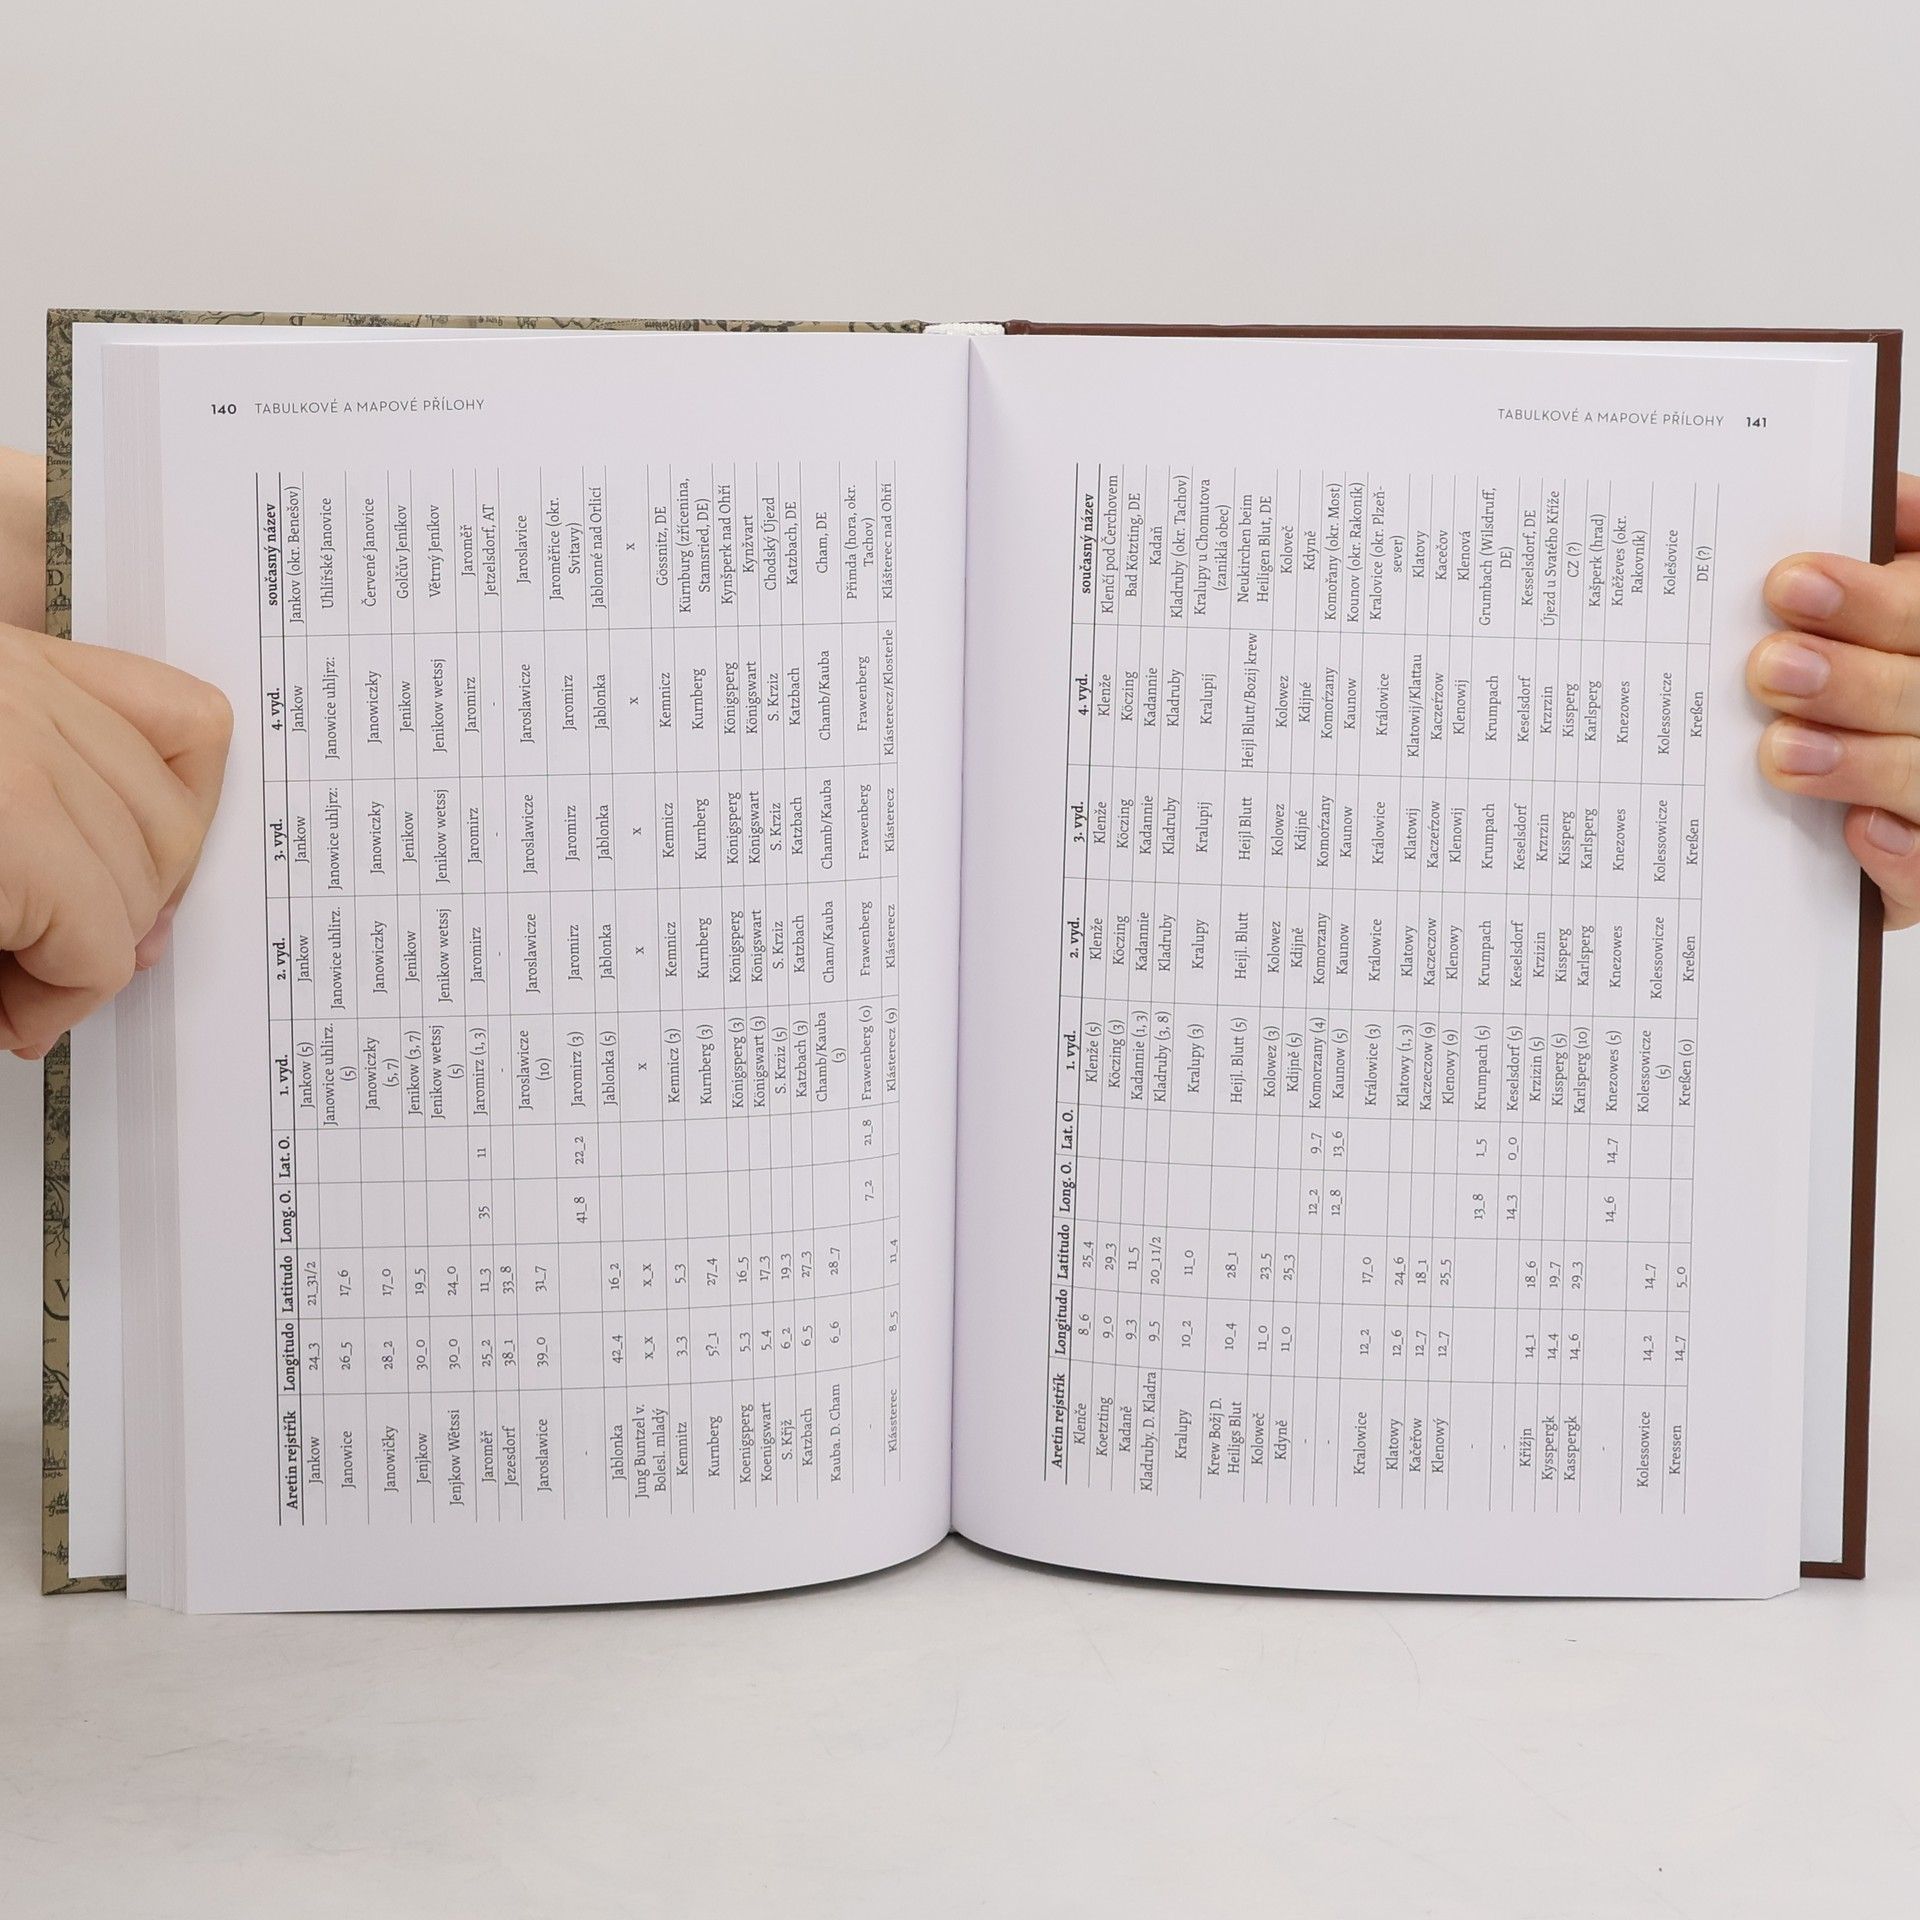 140 TABULKOVÉ A MAPOVÉ PŘÍLOHY
Aretin rejstřík Longitudo Latitudo Long. O. Lat. O. 1. vyd. 2. vyd. 3. vyd. 4. vyd. současný název
Jankow 24_3 21_31/2 Jankow (5) Jankow Jankow Jankow Jankov (okr. Benešov)
Janowice 26_5 17_6 Janowice uhlirz. (5) Janowice uhlirz. Janowice uhljrz: Janowice uhljrz: Uhlířské Janovice
Janowičky 28_2 17_0 Janowiczky (5, 7) Janowiczky Janowiczky Janowiczky Červené Janovice
Jenjkow 30_0 19_5 Jenikow (3, 7) Jenikow Jenikow Jenikow Golčův Jeníkov
Jenjkow Wětssi 30_0 24_0 Jenikow wetssj (5) Jenikow wetssj Jenikow wetssj Jenikow wetssj Větrný Jeníkov
Jaroměř 25_2 11_3 35 11 Jaromirz (1, 3) Jaromirz Jaromirz Jaromirz Jaroměř
Jezesdorf 38_1 33_8 - - - - Jetzelsdorf, AT
Jaroslawice 39_0 31_7 Jaroslawicze (10) Jaroslawicze Jaroslawicze Jaroslawicze Jaroslavice
- 41_8 22_2 Jaromirz (3) Jaromirz Jaromirz Jaromirz Jaroměřice (okr. Svitavy)
Jablonka 42_4 16_2 Jablonka (5) Jablonka Jablonka Jablonka Jablonné nad Orlicí
Jung Buntzel v. Bolesl. mladý x_x x_x x x x x x
Kemnitz 3_3 5_3 Kemnicz (3) Kemnicz Kemnicz Kemnicz Gössnitz, DE
Kurnberg 5?_1 27_4 Kurnberg (3) Kurnberg Kurnberg Kurnberg Kürnburg (zřícenina, Stamsried, DE)
Koenigsperg 5_3 16_5 Königsperg (3) Königsperg Königsperg Königsperg Kynšperk nad Ohří
Koenigswart 5_4 17_3 Königswart (3) Königswart Königswart Königswart Kynžvart
S. Křjž 6_2 19_3 S. Krziz (5) S. Krziz S. Krziz S. Krziz Chodský Újezd
Katzbach 6_5 27_3 Katzbach (3) Katzbach Katzbach Katzbach Katzbach, DE
Kauba. D. Cham 6_6 28_7 Chamb/Kauba (3) Cham/Kauba Chamb/Kauba Chamb/Kauba Cham, DE
- 7_2 21_8 Frawenberg (0) Frawenberg Frawenberg Frawenberg Přimda (hora, okr. Tachov)
Klássterec 8_5 11_4 Klásterecz (9) Klásterecz Klásterecz Klásterecz/Klosterle Klášterec nad Ohří
TABULKOVÉ A MAPOVÉ PŘÍLOHY 141
Aretin rejstřík Longitudo Latitudo Long. O. Lat. O. 1. vyd. 2. vyd. 3. vyd. 4. vyd. současný název
Klenče 8_6 25_4 Klenže (5) Klenže Klenže Klenže Klenčí pod Čerchovem
Koetzting 9_0 29_3 Köczing (3) Köczing Köczing Köczing Bad Kötzting, DE
Kadaně 9_3 11_5 Kadannie (1, 3) Kadannie Kadannie Kadannie Kadaň
Kladruby. D. Kladra 9_5 20_11/2 Kladruby (3, 8) Kladruby Kladruby Kladruby Kladruby (okr. Tachov)
Kralupy 10_2 11_0 Kralupy (3) Kralupy Kralupij Kralupij Kralupy u Chomutova (zaniklá obec)
Krew Božj D. Heiligs Blut 10_4 28_1 Heijl. Blutt (5) Heijl. Blutt Heijl Blutt Heijl Blutt/Bozij krew Neukirchen beim Heiligen Blut, DE
Koloweč 11_0 23_5 Kolowez (3) Kolowez Kolowez Kolowez Koloveč
Kdyně 11_0 25_3 Kdijně (5) Kdijně Kdijné Kdijné Kdyně
- 12_2 9_7 Komorzany (4) Komorzany Komořzany Komořzany Komořany (okr. Most)
- 12_8 13_6 Kaunow (5) Kaunow Kaunow Kaunow Kounov (okr. Rakoník)
Kralowice 12_2 17_0 Králowice (3) Králowice Králowice Králowice Kralovice (okr. Plzeň-sever)
Klatowy 12_6 24_6 Klatowy (1, 3) Klatowy Klatowij Klatowij/Klattau Klatovy
Kačeřow 12_7 18_1 Kaczeczow (9) Kaczeczow Kaczeřzow Kaczeřzow Kacečov
Klenowý 12_7 25_5 Klenowy (9) Klenowy Klenowij Klenowij Klenová
- 13_8 1_5 Krumpach (5) Krumpach Krumpach Krumpach Grumbach (Wilsdruff, DE)
- 14_3 0_0 Keselsdorf (5) Keselsdorf Keselsdorf Keselsdorf Kesselsdorf, DE
Křižjn 14_1 18_6 Krzizin (5) Krzizin Krzrzin Krzrzin Újezd u Svatého Kříže
Kysspergk 14_4 19_7 Kissperg (5) Kissperg Kissperg Kissperg CZ (?)
Kasspergk 14_6 29_3 Karlsperg (10) Karlsperg Karlsperg Karlsperg Kašperk (hrad)
- 14_6 14_7 Knezowes (5) Knezowes Knezowes Knezowes Kněževes (okr. Rakovník)
Kolessowice 14_2 14_7 Kolessowicze (5) Kolessowicze Kolessowicze Kolessowicze Kolešovice
Kressen 14_7 5_0 Kreßen (0) Kreßen Kreßen Kreßen DE (?)